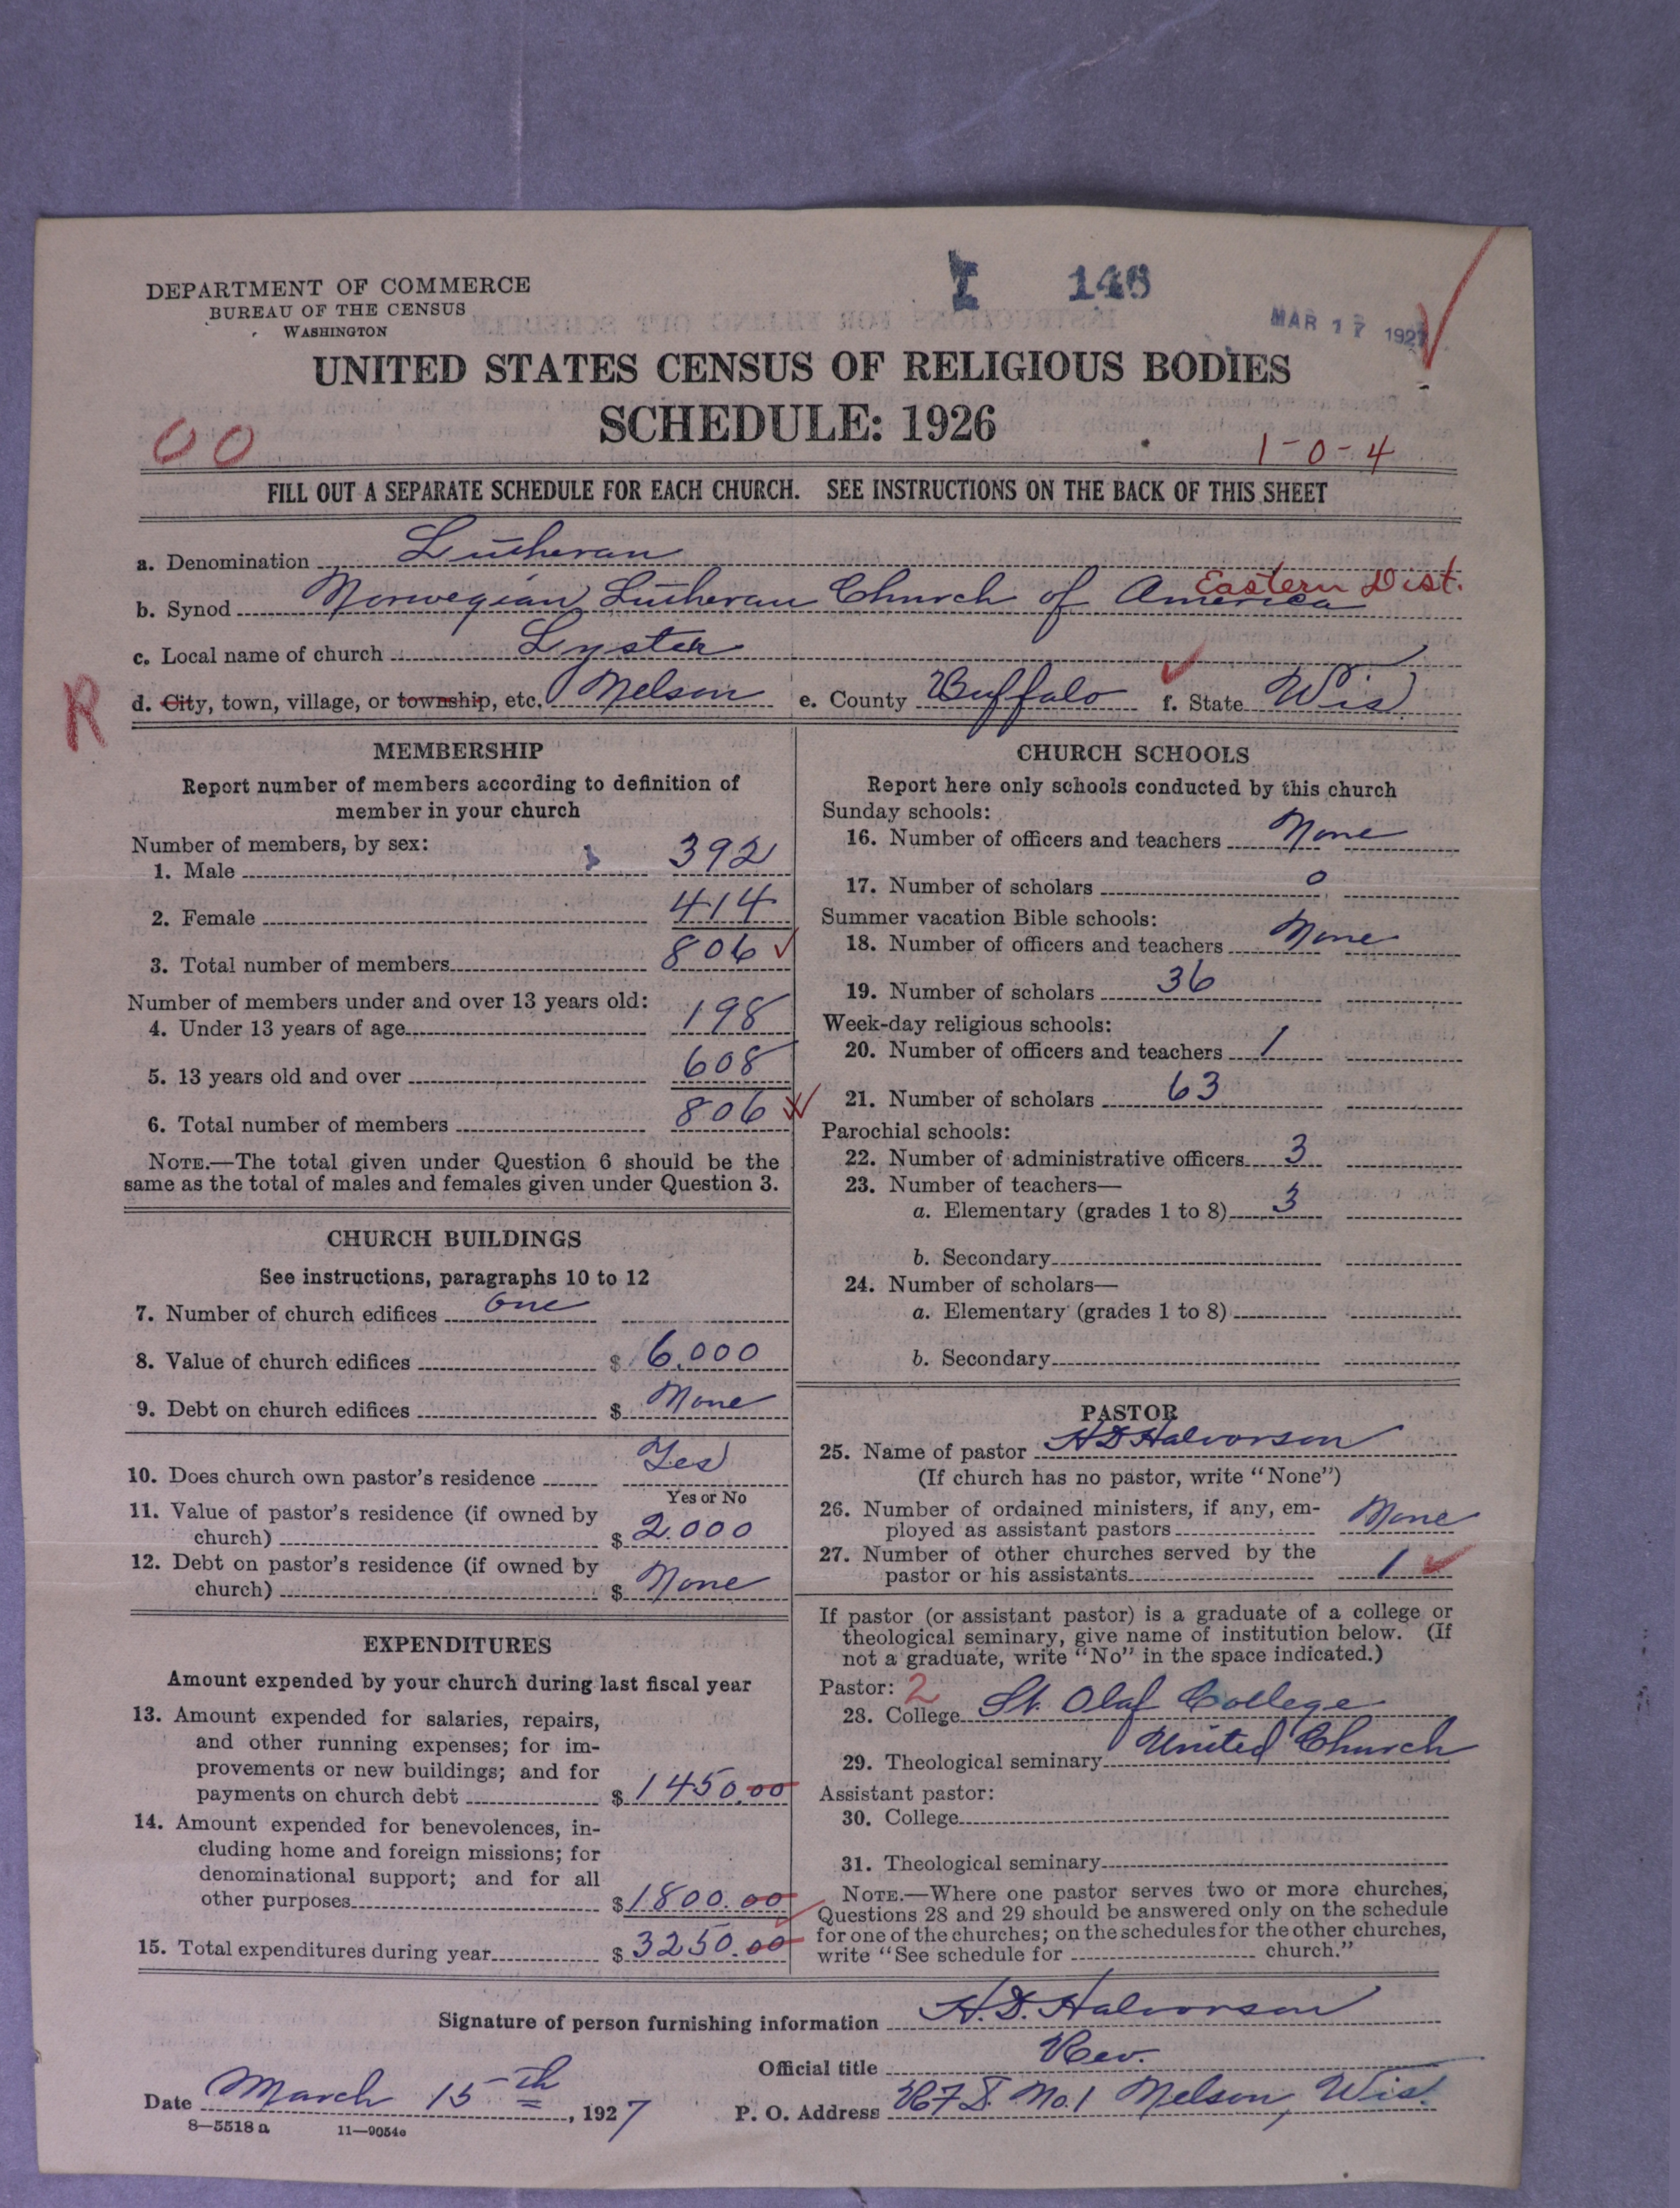 DEPARTMENT OF COMMERCE
BUREAU OF THE CENSUS
WASHINGTON
I 146
MAR 17 1927
UNITED STATES CENSUS OF RELIGIOUS BODIES
SCHEDULE: 1926
00
1-0-4
FILL OUT A SEPARATE SCHEDULE FOR EACH CHURCH. SEE INSTRUCTIONS ON THE BACK OF THIS SHEET
a. Denomination Lutheran
b. Synod Norwegian Lutheran Church of America Eastern Dist.
c. Local name of church Lyster
R
d. City, town, village, or township, etc. Nelson e. County Buffalo f. State Wis
MEMBERSHIP
Report number of members according to definition of
member in your church
Number of members, by sex:
1. Male 392
2. Female 414
3. Total number of members 806
Number of members under and over 13 years old:
4. Under 13 years of age 198
5. 13 years old and over 608
6. Total number of members 806
NOTE.—The total given under Question 6 should be the
same as the total of males and females given under Question 3.
CHURCH BUILDINGS
See instructions, paragraphs 10 to 12
7. Number of church edifices one
8. Value of church edifices $ 6,000
9. Debt on church edifices $ None
10. Does church own pastor's residence Yes
Yes or No
11. Value of pastor's residence (if owned by
church) $ 2.000
12. Debt on pastor's residence (if owned by
church) $ None
EXPENDITURES
Amount expended by your church during last fiscal year
13. Amount expended for salaries, repairs,
and other running expenses; for im-
provements or new buildings; and for
payments on church debt $ 1450.00
14. Amount expended for benevolences, in-
cluding home and foreign missions; for
denominational support; and for all
other purposes $ 1800.00
15. Total expenditures during year $ 3250.00
CHURCH SCHOOLS
Report here only schools conducted by this church
Sunday schools:
16. Number of officers and teachers None
17. Number of scholars 0
Summer vacation Bible schools:
18. Number of officers and teachers None
19. Number of scholars 36
Week-day religious schools:
20. Number of officers and teachers 1
21. Number of scholars 63
Parochial schools:
22. Number of administrative officers 3
23. Number of teachers—
a. Elementary (grades 1 to 8) 3
b. Secondary
24. Number of scholars—
a. Elementary (grades 1 to 8)
b. Secondary
PASTOR
25. Name of pastor H D Halvorson
(If church has no pastor, write "None")
26. Number of ordained ministers, if any, em-
ployed as assistant pastors None
27. Number of other churches served by the
pastor or his assistants 1
If pastor (or assistant pastor) is a graduate of a college or
theological seminary, give name of institution below. (If
not a graduate, write "No" in the space indicated.)
Pastor: 2
28. College St. Olaf College
29. Theological seminary United Church
Assistant pastor:
30. College
31. Theological seminary
NOTE.—Where one pastor serves two or more churches,
Questions 28 and 29 should be answered only on the schedule
for one of the churches; on the schedules for the other churches,
write "See schedule for church."
Signature of person furnishing information H. D. Halvorson
Official title Rev.
Date March 15th, 1927 P. O. Address RFD. No. 1 Nelson, Wis.
8—5518 a 11—9054c